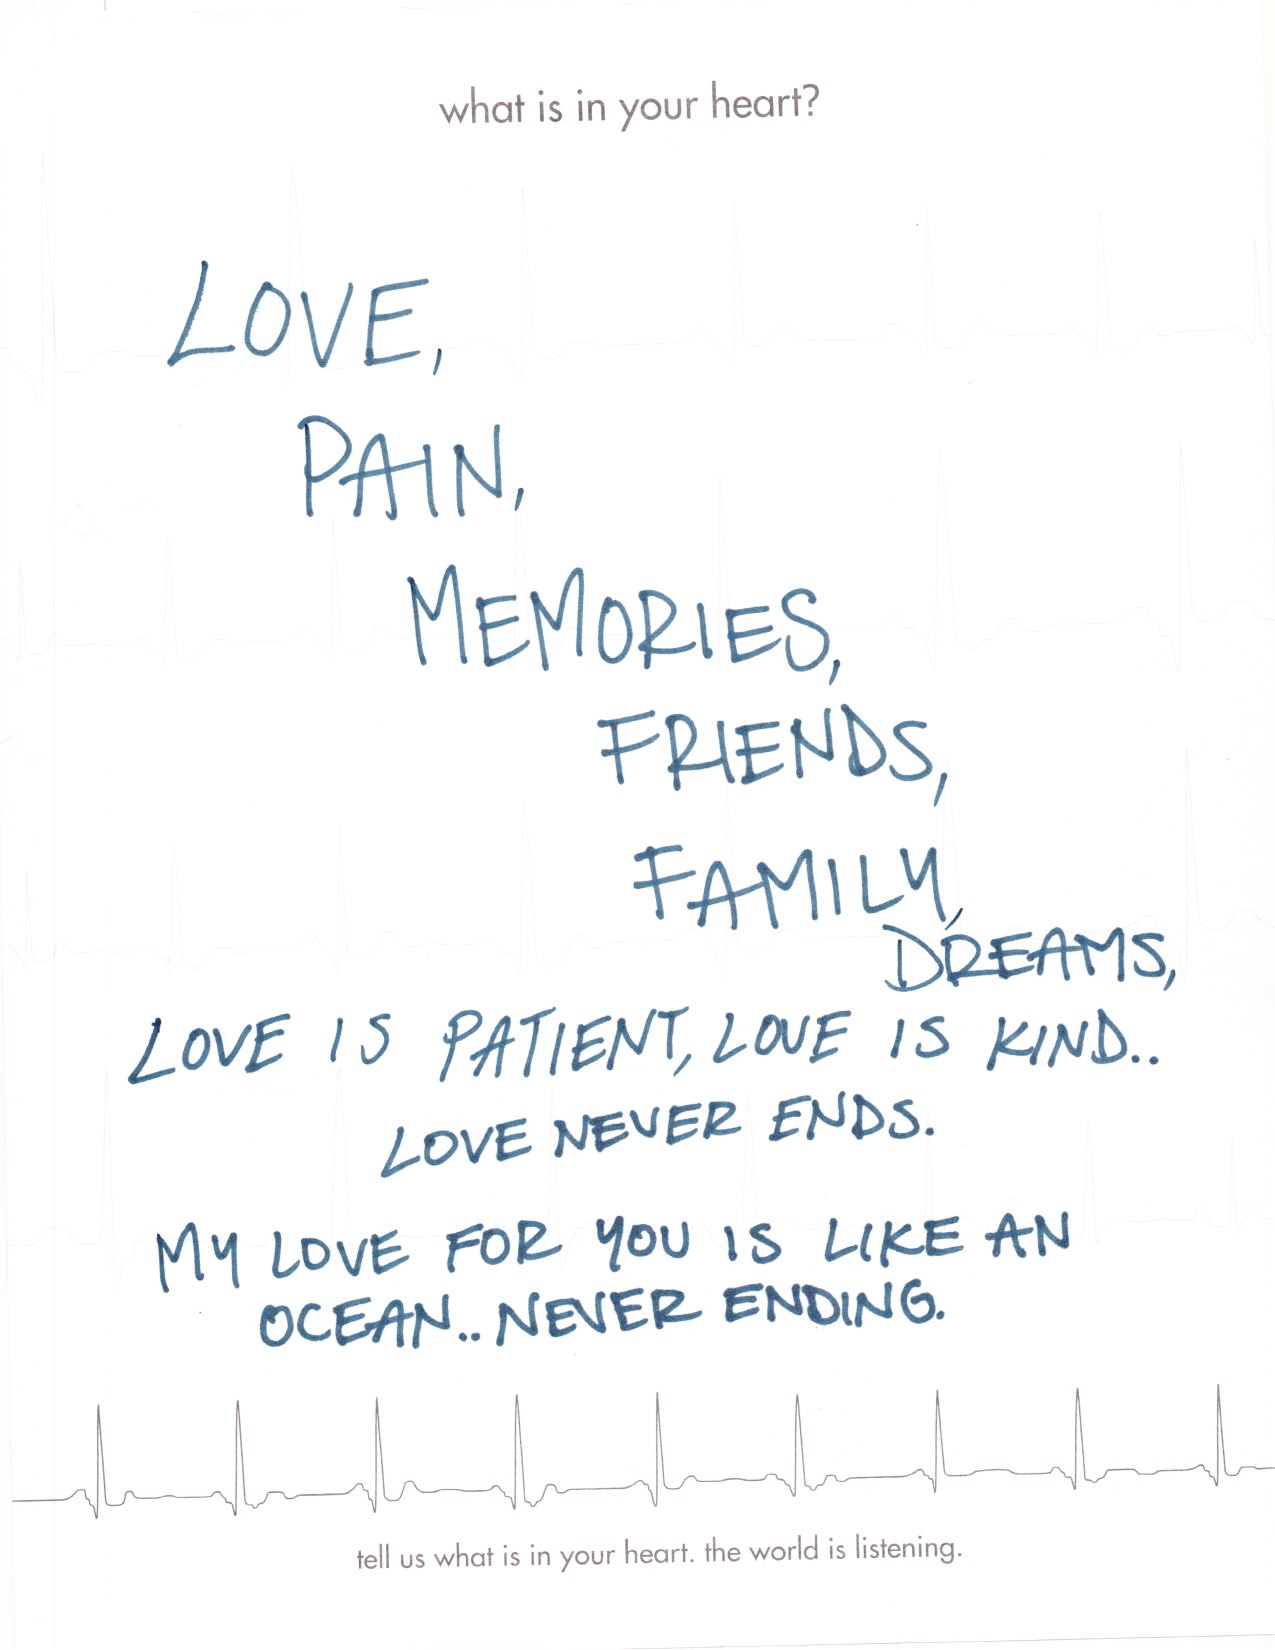 what is in your heart?
LOVE,
PAIN,
MEMORIES,
FRIENDS,
FAMILY,
DREAMS,
LOVE IS PATIENT, LOVE IS KIND..
LOVE NEVER ENDS.
MY LOVE FOR YOU IS LIKE AN
OCEAN.. NEVER ENDING.
tell us what is in your heart. the world is listening.